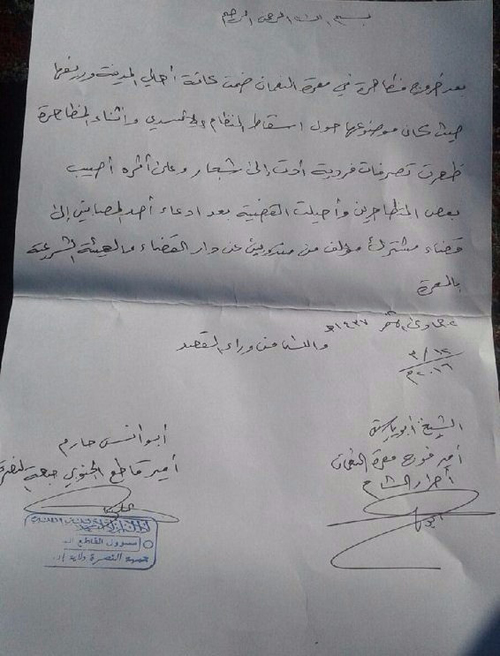 بسم الله الرحمن الرحيم
بعد خروج مظاهرة في معرة النعمان ضمن كافة أهالي المدينة وريفها
حيث كان موضوعها حول اسقاط النظام الأسدي وأثناء المظاهرة
ظهرت تصرفات فردية أدت إلى شجار وعلى أثره أصيب
بعض المتظاهرين وأحيلت القضية بعد ادعاء أحد المصابين إلى
قضاء مشترك مؤلف من مندوبين عن دار القضاء والهيئة الشرعية
بالمعرة
جمادى الآخر ١٤٣٧هـ
٣/١٢
٢٠١٦م
والله من وراء القصد
الشيخ أبو ياسر
أمير فرع معرة النعمان
أحرار الشام
أبو أنس حارم
أمير قاطع الجنوبي جبهة النصرة
مسؤول القاطع
النصرة ولاية